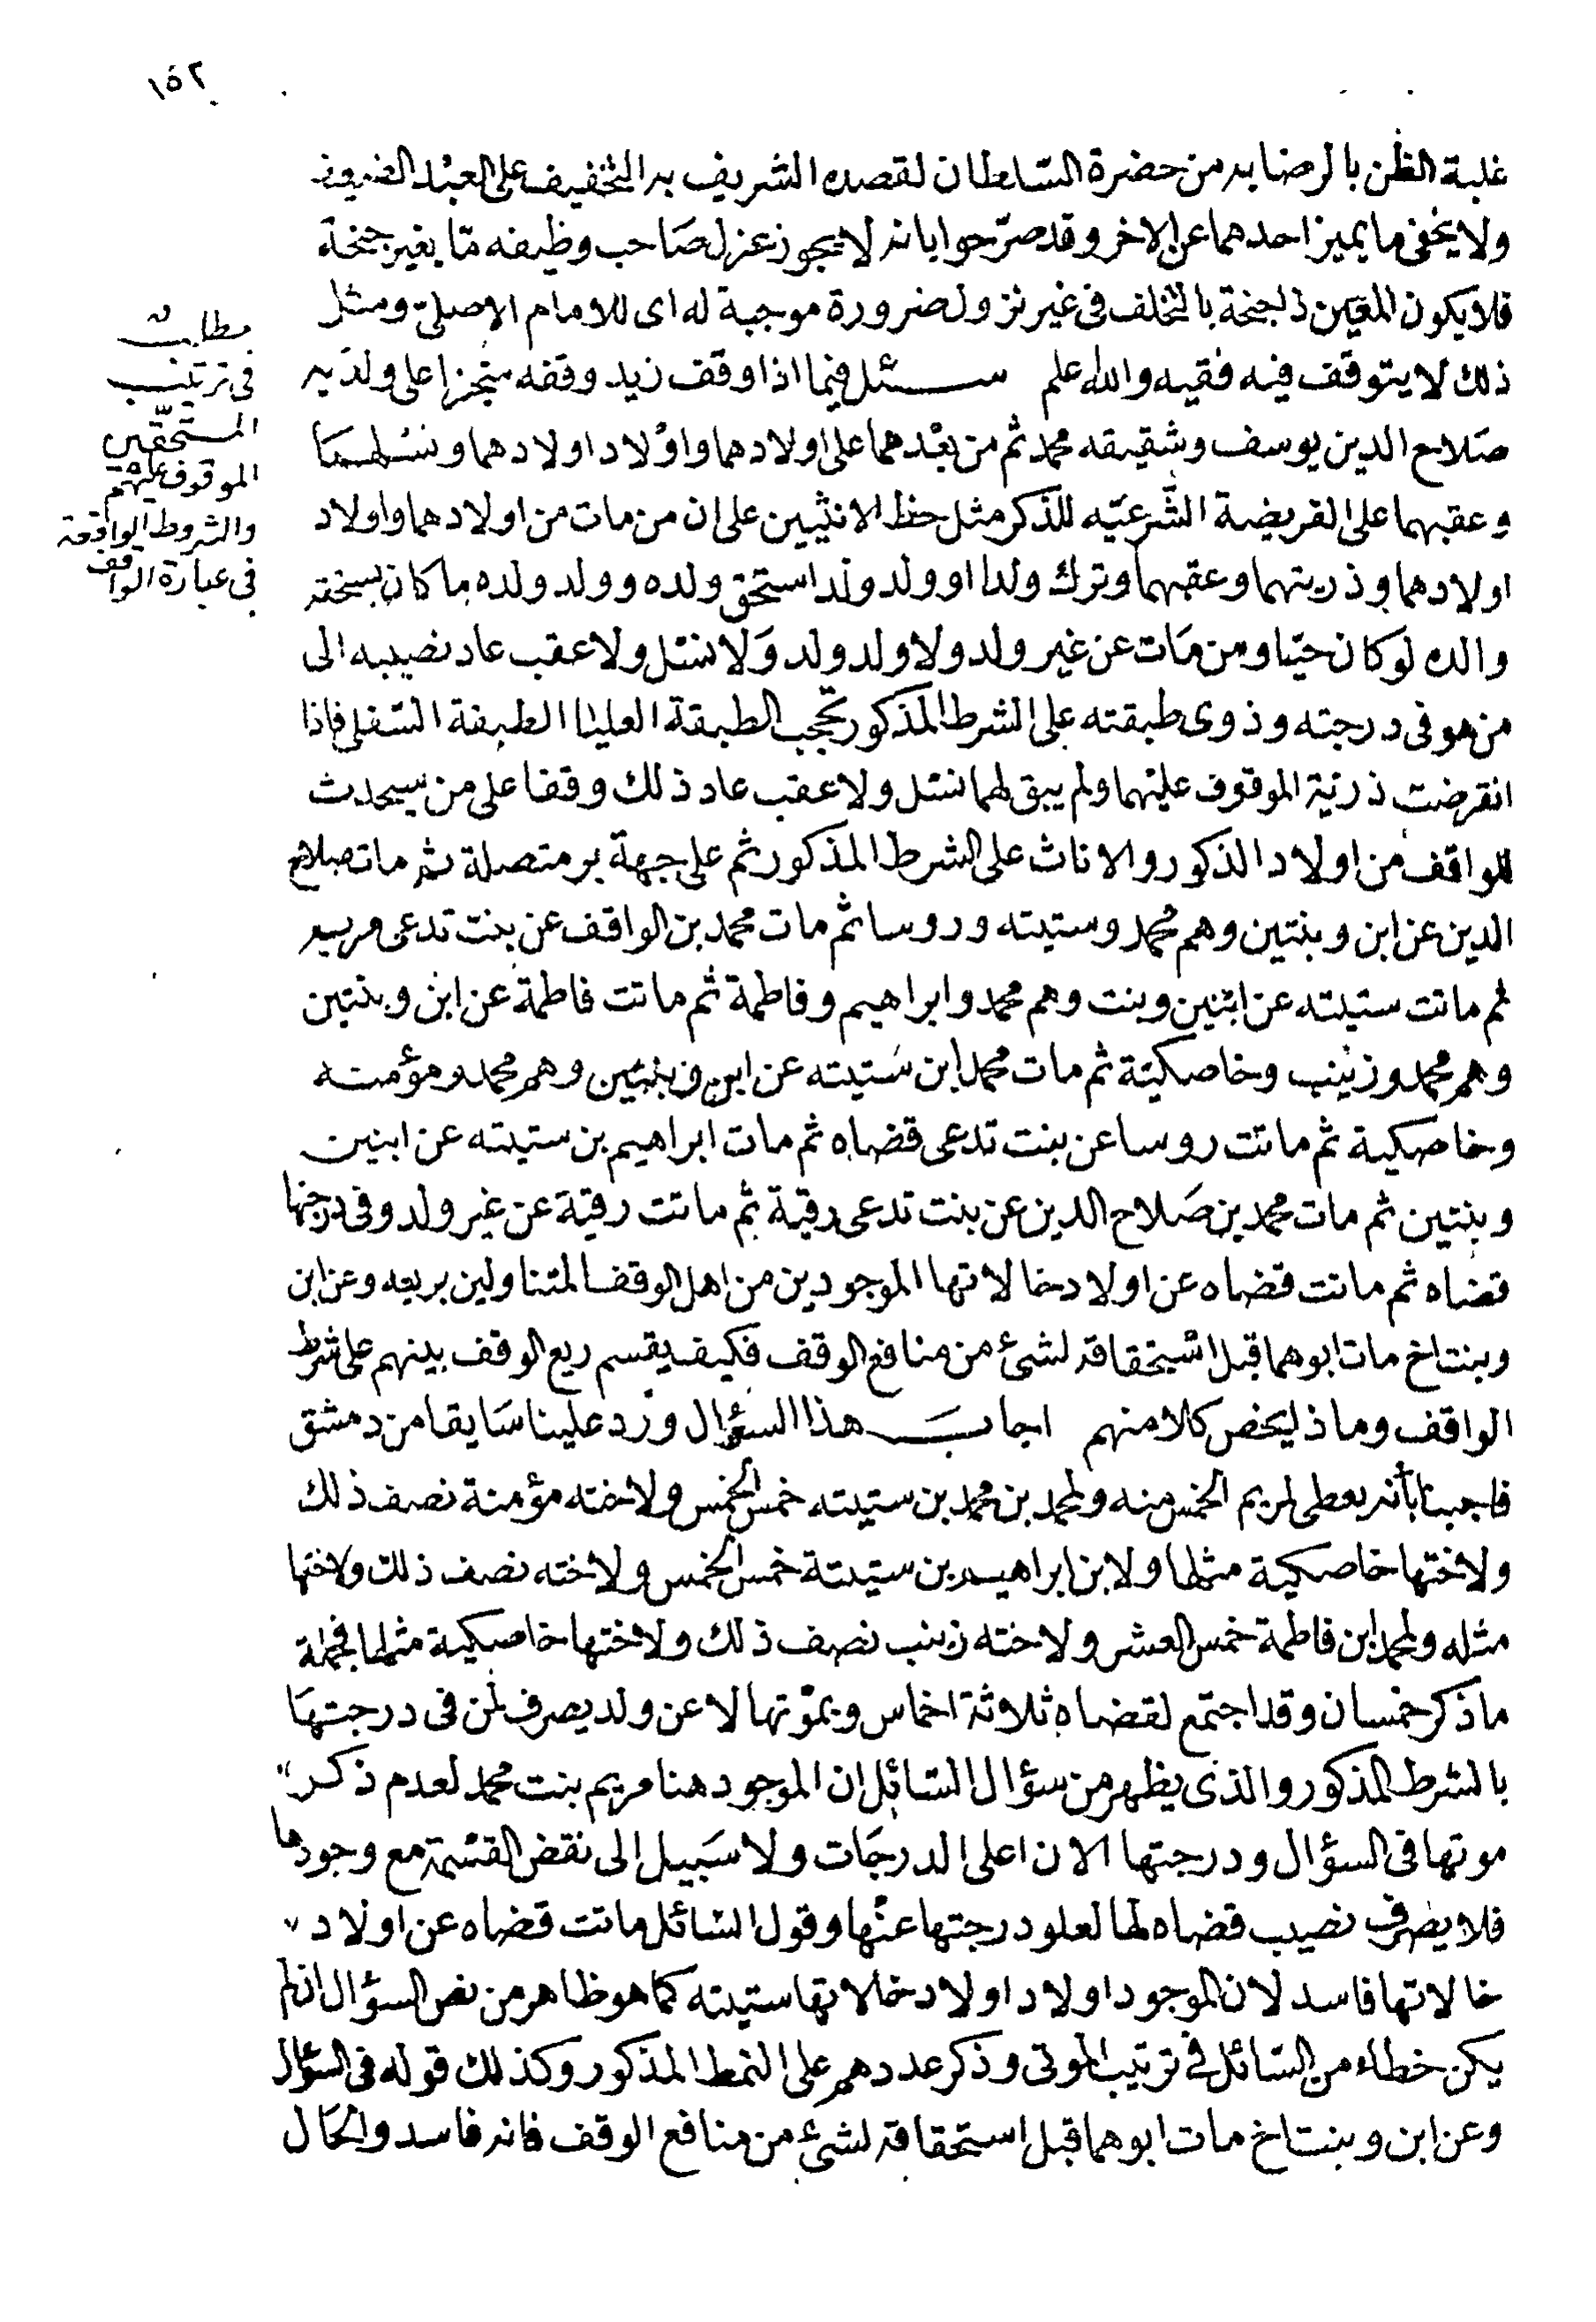 ١٥٢
غلبة الظن بالرضا به من حضرة السلطان لقصده الشريف به التخفيف على العبد الضعيف
ولا يخفى ما يميز احدهما عن الاخر وقد صرّحوا بانه لا يجوز عزل صاحب وظيفه مّا بغير جنحة
فلا يكون المعين ذا جنحة بالتخلف في غير نزول ضرورة موجبة له اى للامام الاصلىّ ومثل
ذلك لا يتوقف فيه فقيه والله علم سئل فيما اذا وقف زيد وقفه منجزا على ولديه
صلاح الدين يوسف وشقيقه محمد ثم من بعدهما على اولادهما واولاد اولادهما ونسلهما
وعقبهما على الفريضة الشرعيّه للذكر مثل حظ الانثيين على ان من مات من اولادهما واولاد
اولادهما وذريتهما وعقبهما وترك ولدا او ولد ولد استحق ولده وولد ولده ما كان يستحقه
والده لو كان حيّا ومن مات عن غير ولد ولا ولد ولد ولا نسل ولا عقب عاد نصيبه الى
من هو في درجته وذوى طبقته على الشرط المذكور تحجب الطبقة العليا الطبقة السّفلى فاذا
انقرضت ذريّة الموقوف عليهما ولم يبق لهما نسل ولا عقب عاد ذلك وقفا على من سيحدث
للواقف من اولاد الذكور والاناث على الشرط المذكور ثم على جهة بر متصلة ثم مات صلاح
الدين عن ابن وبنتين وهم محمد وستيته وروسا ثم مات محمد بن الواقف عن بنت تدعى مريم
ثم ماتت ستيته عن ابنين وبنت وهم محمد وابراهيم وفاطمة ثم ماتت فاطمة عن ابن وبنتين
وهم محمد وزينب وخاصكية ثم مات محمد ابن ستيته عن ابن وبنتين وهم محمد ومؤمنه
وخاصكية ثم ماتت روسا عن بنت تدعى قضاه ثم مات ابراهيم بن ستيته عن ابنين
وبنتين ثم مات محمد بن صلاح الدين عن بنت تدعى رقية ثم ماتت رقية عن غير ولد وفى درجتها
قضاه ثم ماتت قضاه عن اولاد خالاتها الموجودين من اهل الوقف المتناولين بريعه وعن ابن
وبنت اخ مات ابوهما قبل استحقاقه لشئ من منافع الوقف فكيف يقسم ريع الوقف بينهم على شرط
الواقف وما ذا يخص كلا منهم اجاب هذا السؤال ورد علينا سابقا من دمشق
فاجبنا بأنه يعطى لمريم الخمس منه ولمحمد بن محمد بن ستيته خمس الخمس ولاخته مؤمنة نصف ذلك
ولاختها خاصكية مثلها ولابن ابراهيم بن ستيتة خمس الخمس ولاخته نصف ذلك ولاختها
مثله ولمحمد ابن فاطمة خمس العشر ولاخته زينب نصف ذلك ولاختها خاصكية مثلها فجملة
ما ذكر خمسان وقد اجتمع لقضاه ثلاثة اخماس وبموتها لا عن ولد يصرف لمن فى درجتها
بالشرط المذكور والذى يظهر من سؤال السائل ان الموجود هنا مريم بنت محمد لعدم ذكر
موتها فى السؤال ودرجتها الان اعلى الدرجات ولا سبيل الى نقض القسمة مع وجودها
فلا يصرف نصيب قضاه لها لعلو درجتها عنها وقول السائل ماتت قضاه عن اولاد
خالاتها فاسد لان الموجود اولاد اولاد خالاتها ستيته كما هو ظاهر من نص السؤال ان لم
يكن خطاء من السائل في ترتيب الموتى وذكر عددهم على النمط المذكور وكذلك قوله فى السؤال
وعن ابن وبنت اخ مات ابوهما قبل استحقاقه لشئ من منافع الوقف فانه فاسد والحال
مطلب
فى ترتيب
المستحقّين
الموقوف عليهم
والشروط الواقعة
فى عبارة الواقف